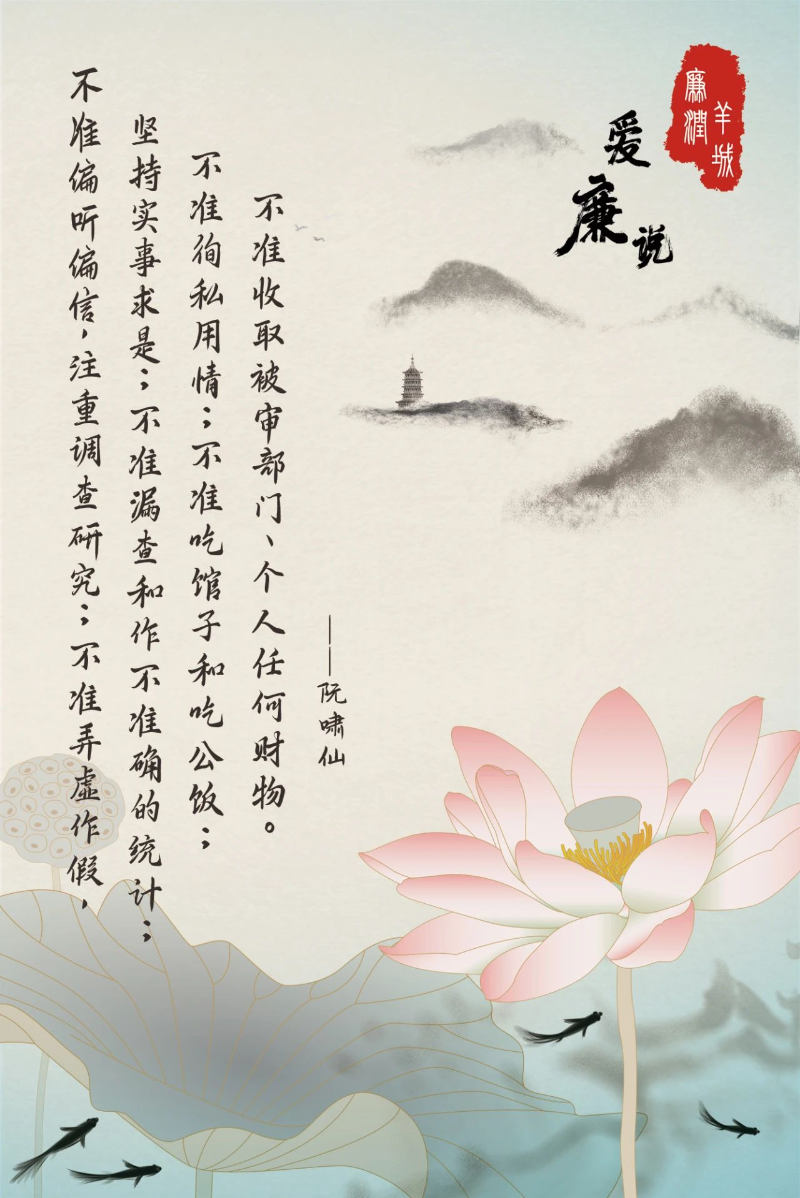 廉潤
羊城
爱廉说
不准偏听偏信，注重调查研究；不准弄虚作假，
坚持实事求是；不准漏查和作不准确的统计；
不准徇私用情；不准吃馆子和吃公饭；
不准收取被审部门、个人任何财物。
——阮啸仙